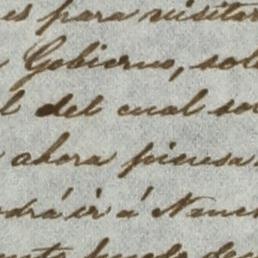 es para visitar
Gobierno, sol
l del cual so
ahora piensa
odrá ir á Nanc